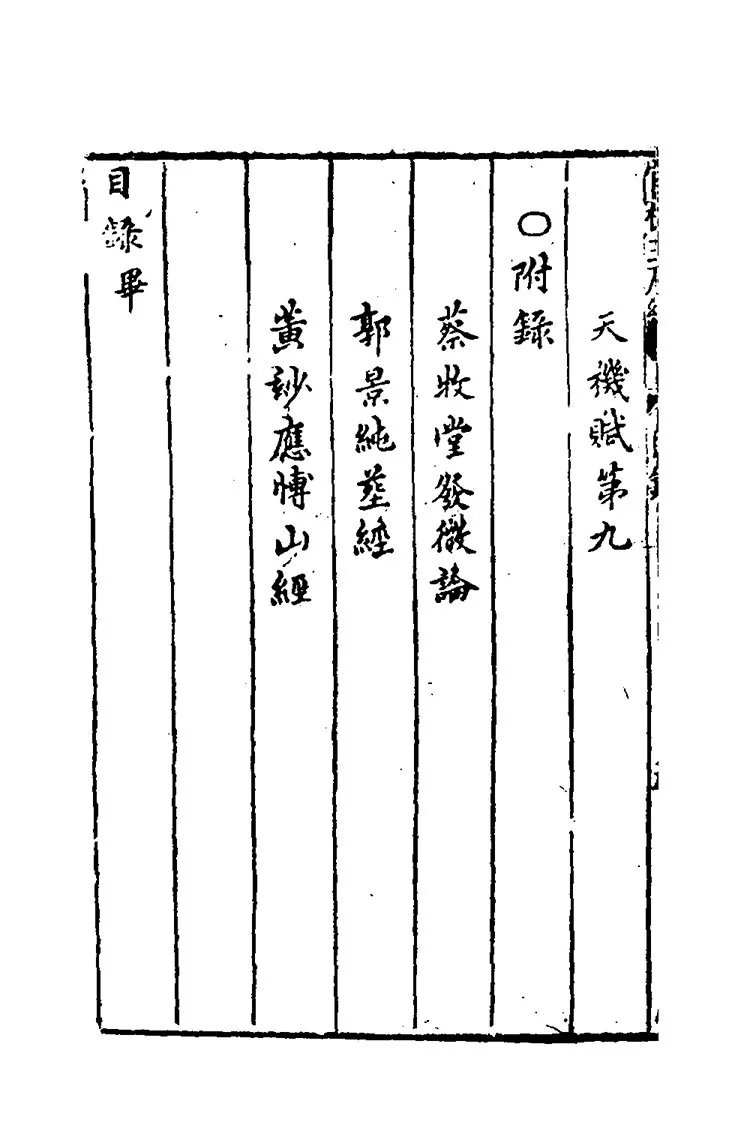 天機賦第九
○附錄
蔡牧堂發微論
郭景純葬經
黃玅應博山經
目錄畢